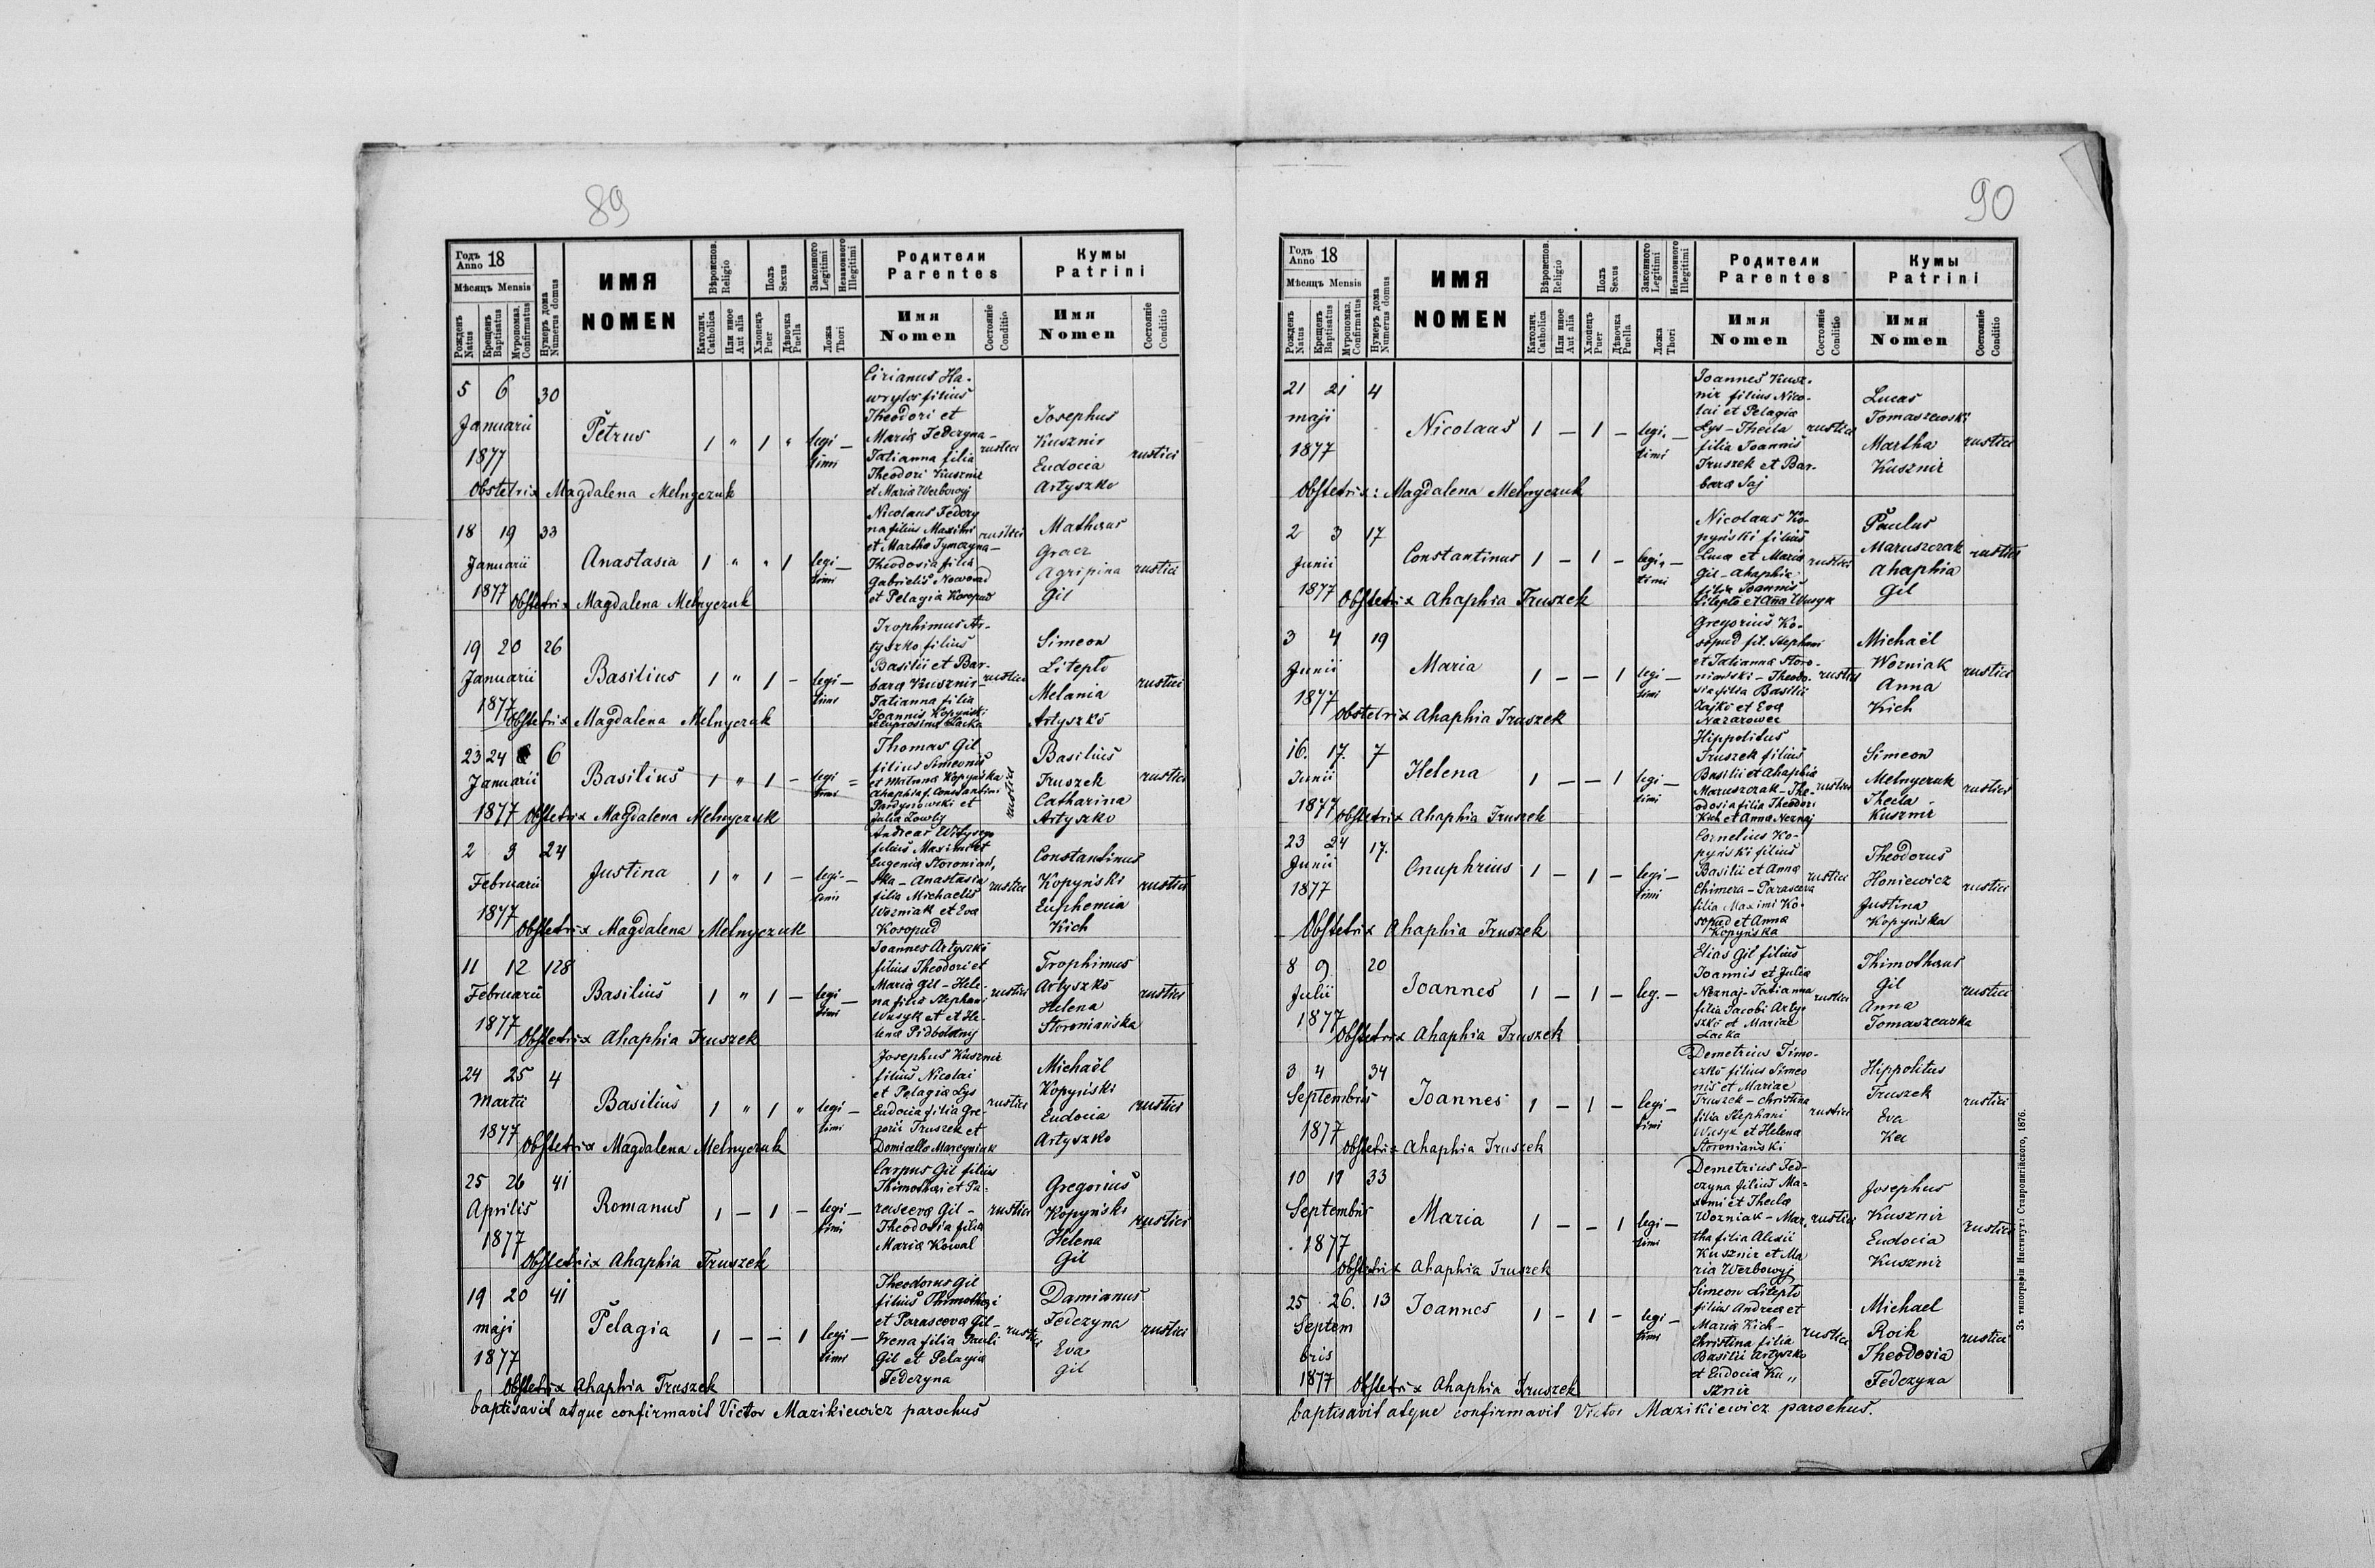 89
Годъ Anno 18
Мѣсяцъ Mensis
Рожденъ Natus
Крещенъ Baptisatus
Мѵропомаз. Confirmatus
Нумеръ дома Numerus domus
ИМЯ
NOMEN
Вѣроисповѣд. Religio
Католич. Catholica
Или иное Aut alia
Полъ Sexus
Хлопецъ Puer
Дѣвочка Puella
Законного Legitimi
Незаконного Illegitimi
Ложа Thori
Родители
Parentes
Имя
Nomen
Состояніе Conditio
Кумы
Patrini
Имя
Nomen
Состояніе Conditio
5 6 30
Januarii
1877
Petrus
1 " 1 "
legi —
timi
Cirianus Ha-
wrylos filius
Theodori et
Maria Fedczyna —
Tatianna filia
Theodori Kusznir
et Maria Werbowyj
rustici
Josephus
Kusznir
Eudocia
Artyszko
rustici
Obstetrix Magdalena Melnyczuk
18 19 33
Januarii
1877
Anastasia
1 " " 1
legi —
timi
Nicolaus Fedczy
na filius Maximi
et Martha Tymczyna —
Theodosia filia
Gabrielis Noworad
et Pelagia Koropud
rustici
Mathæus
Gracz
Agripina
Gil
rustici
Obstetrix Magdalena Melnyczuk
19 20 26
Januarii
1877
Basilius
1 " 1 —
legi —
timi
Trophimus Ar-
tyszko filius
Basilii et Bar-
bara Kusznir —
Tatianna filia
Joannis Kopyński
Eufrosina Łacka
rustici
Simeon
Litepło
Melania
Artyszko
rustici
Obstetrix Magdalena Melnyczuk
23 24 6
Januarii
1877
Basilius
1 " 1 —
legi =
timi
Thomas Gil
filius Simeonis
et Matrona Kopyńska
Ahaphia f. Constantini
et
Julia
rustici
Basilius
Truszek
Catharina
Artyszko
rustici
Obstetrix Magdalena Melnyczuk
2 3 24
Februarii
1877
Justina
1 " 1 —
legi —
timi
Andreas
filius Maximi et
Eugenia Storoniań,
ska — Anastasia
filia Michaelis
Wozniak et Eva
Koropud
rustici
Constantinus
Kopyński
Euphemia
Kich
rustici
Obstetrix Magdalena Melnyczuk
11 12 128
Februarii
1877
Basilius
1 " 1 —
legi —
timi
Joannes Artyszko
filius Theodori et
Maria Gil — Hele-
na filia Stephani
Wusyk et et He-
lena
rustici
Trophimus
Artyszko
Helena
Storoniańska
rustici
Obstetrix Ahaphia Truszek
24 25 4
Martii
1877
Basilius
1 " 1 "
legi —
timi
Josephus Kusznir
filius Nicolai
et Pelagia Lys
Eudocia filia Gre-
gorii Truszek et
Domicella Marcyniuk
rustici
Michaël
Kopyński
Eudocia
Artyszko
rustici
Obstetrix Magdalena Melnyczuk
25 26 41
Aprilis
1877
Romanus
1 — 1 —
legi —
timi
Carpus Gil filius
Thimothæi et Pa-
rasceva Gil —
Theodosia filia
Maria Kowal
rustici
Gregorius
Kopyński
Helena
Gil
rustici
Obstetrix Ahaphia Truszek
19 20 41
maji
1877
Pelagia
1 — — 1
legi —
timi
Theodorus Gil
filius Thimothæi
et Parasceva Gil —
Irena filia Pauli
Gil et Pelagia
Fedczyna
rustici
Damianus
Fedczyna
Eva
Gil
rustici
Obstetrix Ahaphia Truszek
baptisavit atque confirmavit Victor Mazikiewicz parochus
90
Годъ Anno 18
Мѣсяцъ Mensis
Рожденъ Natus
Крещенъ Baptisatus
Мѵропомаз. Confirmatus
Нумеръ дома Numerus domus
ИМЯ
NOMEN
Вѣроисповѣд. Religio
Католич. Catholica
Или иное Aut alia
Полъ Sexus
Хлопецъ Puer
Дѣвочка Puella
Законного Legitimi
Незаконного Illegitimi
Ложа Thori
Родители
Parentes
Имя
Nomen
Состояніе Conditio
Кумы
Patrini
Имя
Nomen
Состояніе Conditio
21 21 4
maji
1877
Nicolaus
1 — 1 —
legi. —
timi
Joannes Kusz-
nir filius Nico-
lai et Pelagia
Lys — Thecla
filia Joannis
Truszek et Bar-
bara Saj
rustici
Lucas
Tomaszewski
Martha
Kusznir
rustici
Obstetrix: Magdalena Melnyczuk
2 3 17
Junii
1877
Constantinus
1 — 1 —
legi —
timi
Nicolaus Ko-
pyński filius
Luca et Maria
Gil — Ahaphia
filia Joannis
Litepło et Anna Wusyk
rustici
Paulus
Maruszczak
Ahaphia
Gil
rustici
Obstetrix Ahaphia Truszek
3 4 19
Junii
1877
Maria
1 — — 1
legi —
timi
Gregorius Ko-
ropud fil. Stephani
et Tatianna Storo-
niański — Theodo-
sia filia Basilii
Zajko et Eva
Nazarowec
rustici
Michaël
Wozniak
Anna
Kich
rustici
Obstetrix Ahaphia Truszek
16. 17. 7
Junii
1877
Helena
1 — — 1
legi —
timi
Hippolitus
Truszek filius
Basilii et Ahaphia
Maruszczak — The-
odosia filia Theodori
Kich et Anna Neznaj
rustici
Simeon
Melnyczuk
Thecla
Kusznir
rustici
Obstetrix Ahaphia Truszek
23 24 17.
Junii
1877
Onuphrius
1 — 1 —
legi —
timi
Cornelius Ko-
pyński filius
Basilii et Anna
Chimera — Parasceva
filia Maximi Ko-
ropud et Anna
Kopyńska
rustici
Theodorus
Honiewicz
Justina
Kopyńska
rustici
Obstetrix Ahaphia Truszek
8 9 20
Julii
1877
Joannes
1 — 1 —
leg. —
Elias Gil filius
Joannis et Julia
Neznaj — Tatianna
filia Jacobi Arty-
szko et Mariae
Łacka
rustici
Thimothæus
Gil
Anna
Tomaszewska
rustici
Obstetrix Ahaphia Truszek
3 4 34
Septembris
1877
Joannes
1 — 1 —
legi —
timi
Demetrius Timo-
szko filius Simeo
nis et Mariae
Truszek — Christina
filia Stephani
Wusyk et Helena
Storoniański
rustici
Hippolitus
Truszek
Eva
rustici
Obstetrix Ahaphia Truszek
10 11 33
Septembris
1877
Maria
1 — — 1
legi —
timi
Demetrius Fed-
czyna filius Ma-
ximi et Thecla
Wozniak — Mar-
tha filia Alexii
Kusznir et Ma
ria Werbowyj
rustici
Josephus
Kusznir
Eudocia
Kusznir
rustici
Obstetrix Ahaphia Truszek
25 26. 13
Septem
bris
1877
Joannes
1 — 1 —
legi —
timi
Simeon Litepło
filius Andrea et
Maria Kich —
Christina filia
Basilii Artyszko
et Eudocia Ku „
sznir
rustici
Michael
Roik
Theodosia
Fedczyna
rustici
Obstetrix Ahaphia Truszek
baptisavit atque confirmavit Victor Mazikiewicz parochus.
Зъ типографіи Институт: Ставропигійского, 1876.